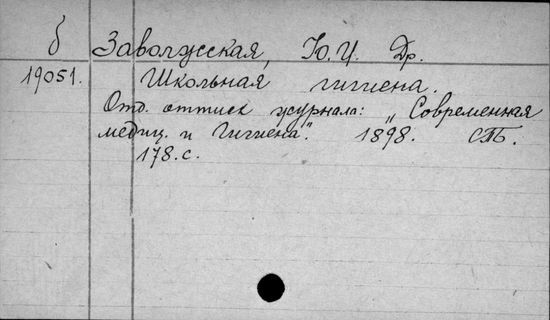 б Заволжская, Ю. И. Др.
19051. Школьная гигиена.
Отд. оттиск журнала: „Современная
медиц. и Гигиена". 1898. СПБ.
178. с.